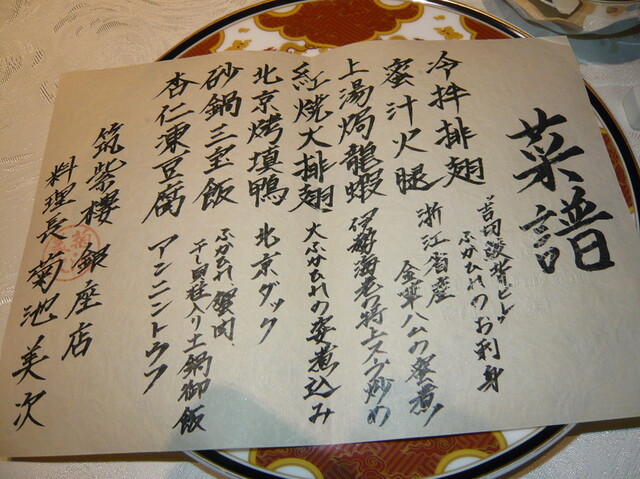 菜譜
冷拌排翅
吉切鮫背ビレ
ふかひれのお刺身
蜜汁火腿
浙江省産
金華ハムの蜜煮
上湯焗龍蝦
伊勢海老の特上スープ炒め
紅焼大排翅
大ふかひれの姿煮込み
北京烤填鴨
北京ダック
砂鍋三宝飯
ふかひれ 蟹肉
干し貝柱入り土鍋御飯
杏仁凍豆腐
アンニントウフ
筑紫樓 銀座店
料理長 菊池美次